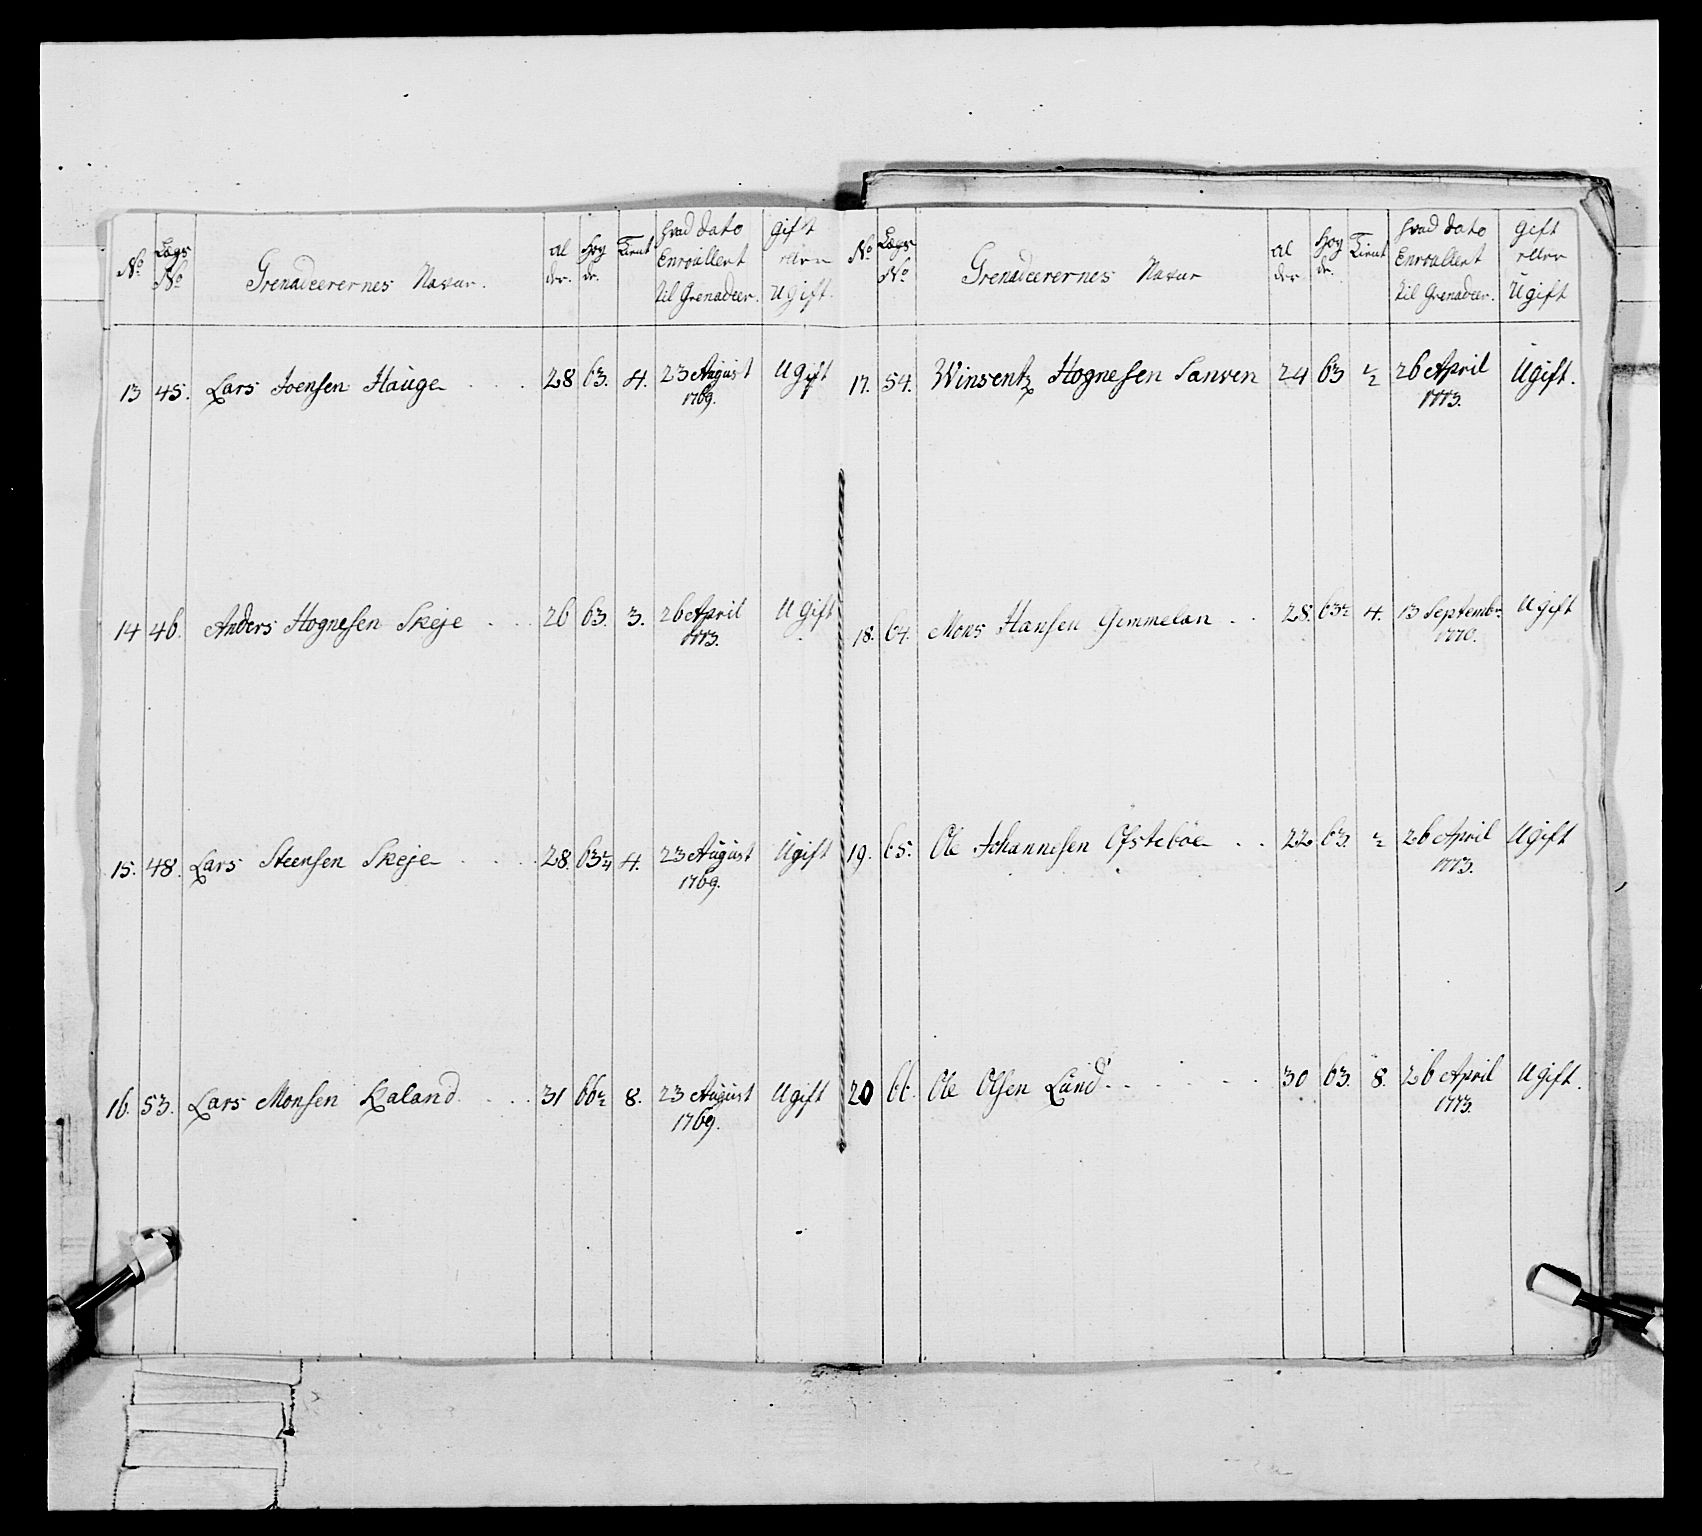 No Lægs No Grenadeerernes Navne. Al der. Høy de. Tient hvad dato Enroullert til Grenadeer. gift eller Ugift.
13 45. Lars Joensen Hauge 28 63. 4. 23 August 1769. Ugift
14 46. Anders Hognesen Skeje 26 63. 3. 26 April 1773. Ugift
15. 48. Lars Steensen Skeje 28. 63½ 4. 23 August 1769. Ugift
16. 53. Lars Monsen Kaland 31 66½ 8. 23 August 1769. Ugift
No Lægs No Grenadeerernes Navne Al der Høy de. Tient hvad dato Enroullert til Grenadeer. gift eller Ugift
17. 54. Winsentz Hognesen Sanven 24 63 ½ 26 April 1773. Ugift.
18. 64. Mons Hansen Gimmelan 28. 63½ 4. 13 Septembr. 1770. Ugift
19. 65. Ole Johannesen Ofstebøe 22 63. ½ 26 April 1773. Ugift
20 66. Ole Olsen Lund 30 63. 8. 26 April 1773. Ugift.